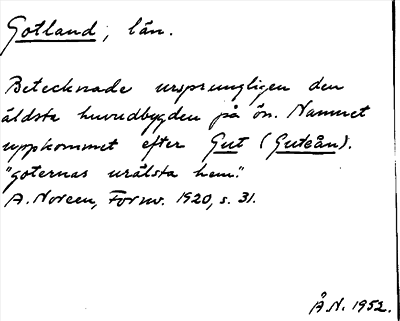 Gotland, län.
Betecknade ursprungligen den
äldsta huvudbygden på ön. Namnet
uppkommet efter Gut (Guteån).
"goternas urälsta hem."
A. Noreen, Fornv. 1920, s. 31.
Å.N. 1952.